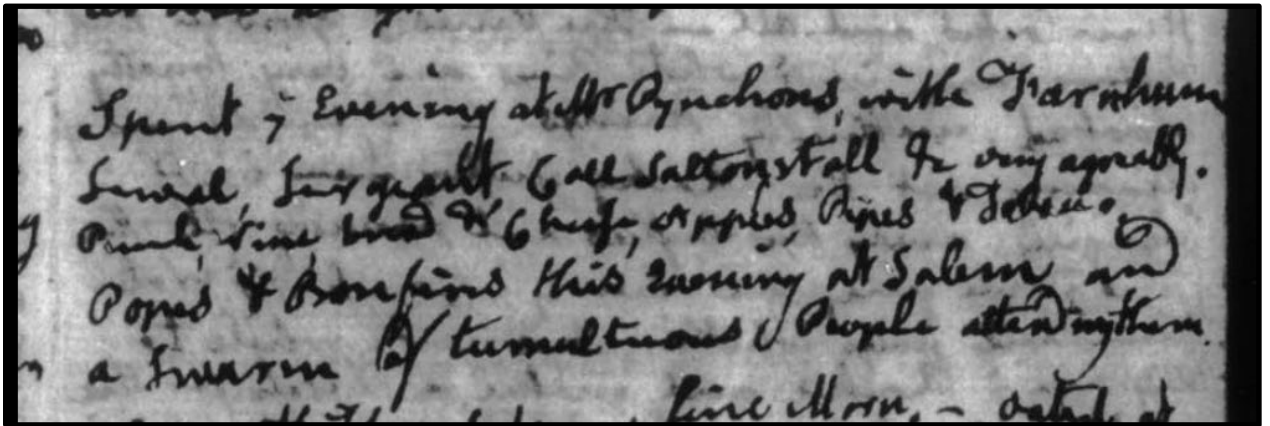 Spent ÿ Evening at Mr Pynchons, with Farnham
Sewal, Sargeant Coll Saltonstall &c very agreably.
Punch, Wine, bread & Cheese, Apples, Pipes & Tobacco.
Popes & Bonfires this Evening at Salem and
a Swarm of tumultuous People attending them.
fine Morn, - oated at